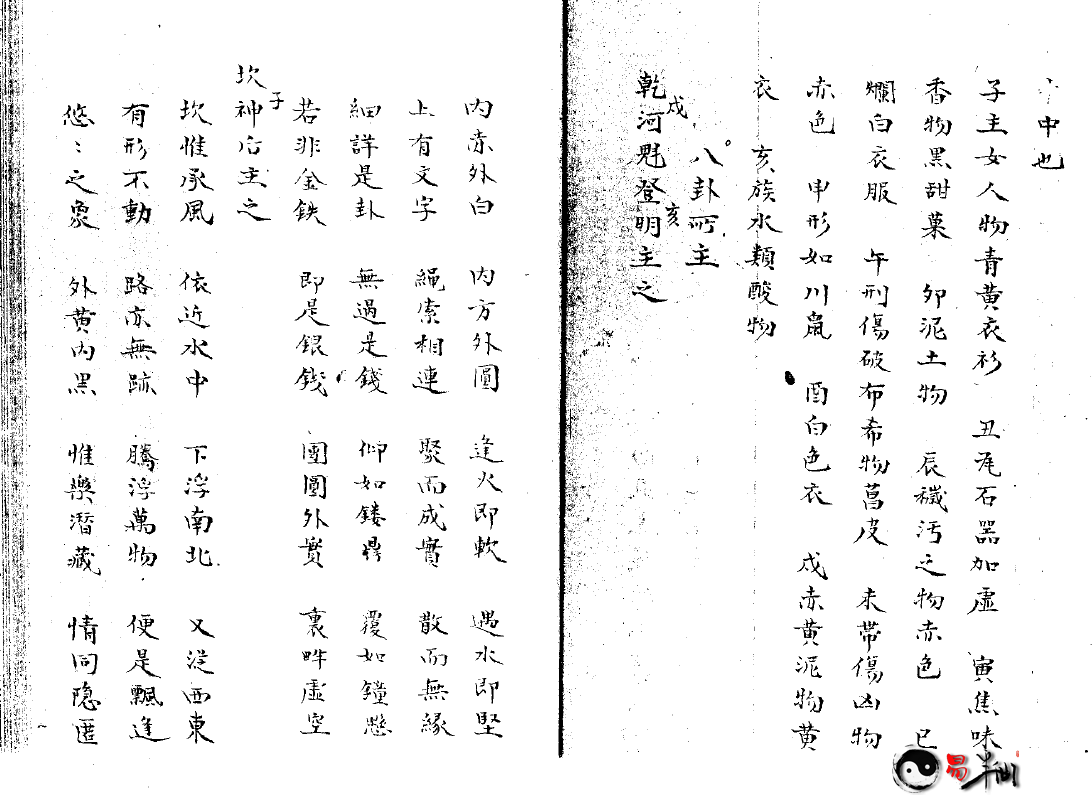 中也
子主女人物青黃衣衫　丑瓦石器加虛　寅焦味
香物黑甜菓　卯泥土物　辰穢污之物赤色　巳
爛白衣服　午刑傷破布希物菖皮　未帶傷凶物
赤色　申形如川鼠　酉白色衣　戌赤黃泥物黃
衣　亥族水類酸物
八卦所主
乾河魁登明主之
戌　亥
內赤外白　內方外圓　逢火即軟　遇水即堅
上有文字　繩索相連　聚而成實　散而無緣
細詳是卦　無過是錢　仰如鏤鼎　覆如鐘懸
若非金鉄　即是銀錢　團圓外實　裏畔虛空
坎神后主之
子
坎惟承風　依近水中　下浮南北　又從西東
有形不動　路亦無跡　騰浮萬物　便是飄逢
悠〻之象　外黃內黑　惟樂潛藏　情同隐匿
易半仙